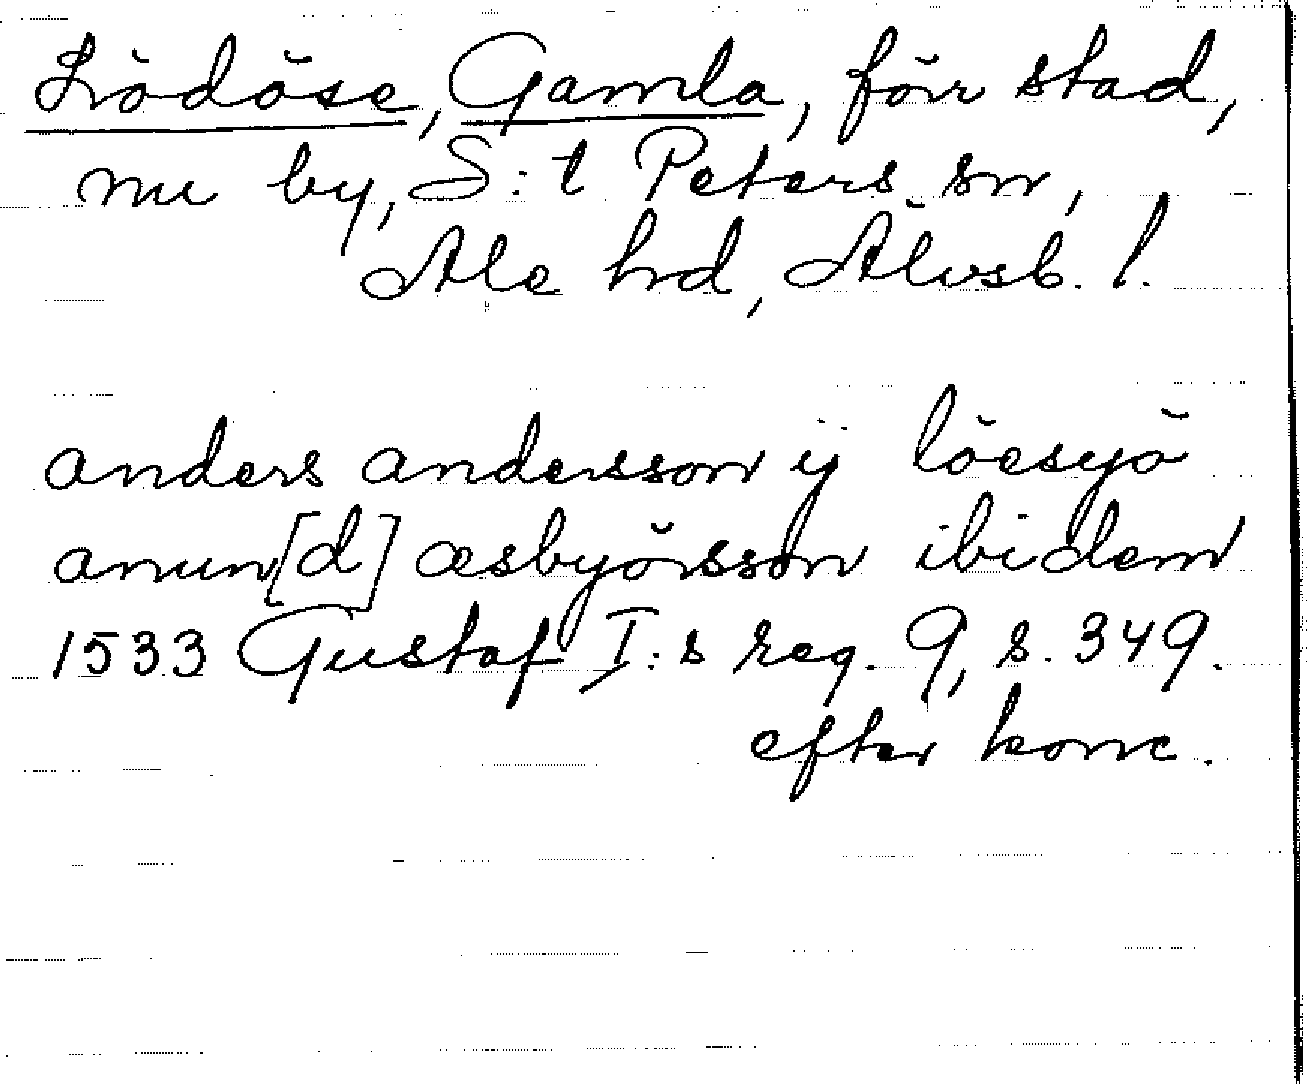 Lödöse, Gamla, förr stad,
nu by, S:t Peters sn,
Ale hd, Älvsb. l.
anders andersson ÿ löesyö
anun[d] æsbyörsson ibidem
1533 Gustaf I:s reg. 9, s. 349.
efter konc.